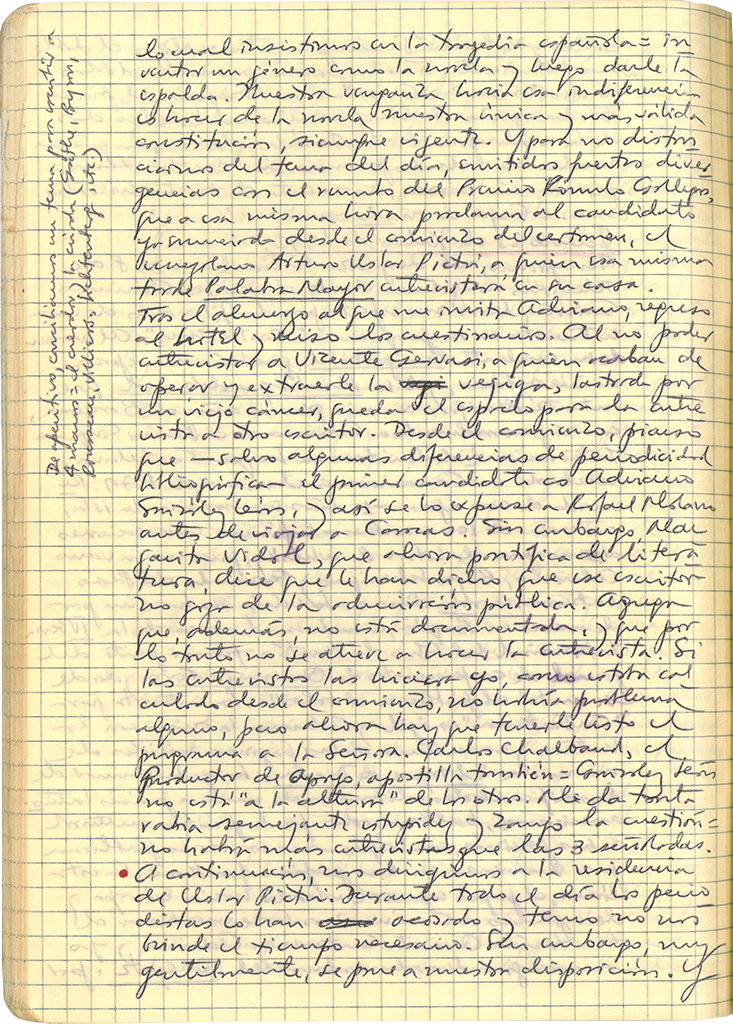 lo cual insistimos en la tragedia española= in
ventar un género como la novela y luego darle la
espalda. Nuestra venganza hacia esa indiferencia
es hacer de la novela nuestra única y más válida
constitución, siempre vigente. Y para no distan
ciarnos del tema del día, emitidos fuertes diver
gencias con el rumbo del Premio Rómulo Gallegos,
que a esa misma hora proclama al candidato
ya sumeirda desde el comienzo del certamen, el
venezolano Arturo Uslar Pietri, a quien esa misma
tarde Palabra Mayor entrevistará en su casa.
Tras el almuerzo al que me invita Adriano, regreso
al hotel y reviso los cuestionarios. Al no poder
entrevistar a Vicente Gerbasi, a quien acaban de
operar y extraerle la vejiga, lastrada por
un viejo cáncer, queda el espacio para la entre
vista a otro escritor. Desde el comienzo, pienso
que —salvo algunas diferencias de periodicidad
bibliográfica— el primer candidato es Adriano
González León, y así se lo expuse a Rafael
antes de viajar a Caracas. Sin embargo, Mar
garita Vidal, que ahora pontifica de litera
tura, dice que le han dicho que ese escritor
no goza de la admiración pública. Agrega
que, además, no está documentada, y que por
lo tanto no se atreve a hacer la entrevista. Si
las entrevistas las hiciera yo, como estaba cal
culado desde el comienzo, no habría problema
alguno, pero ahora hay que tenerle listo el
programa a la Señora. Carlos Chalbaud, el
Productor de apoyo, apostilla también= González León
no está "a la altura" de los otros. Me da tanta
rabia semejante estupidez y zanjo la cuestión=
no habrá más entrevistas que las 3 señaladas.
A continuación, nos dirigimos a la residencia
de Uslar Pietri. Durante todo el día los perio
distas lo han acosado y temo no nos
brinde el tiempo necesario. Sin embargo, muy
gentilmente, se pone a nuestra disposición. Y
De aperitivo, conciliamos un tema para escribir a
4 manos= el cuerdo, la cuerda (Goethe, Byron,
Rousseau, etc)